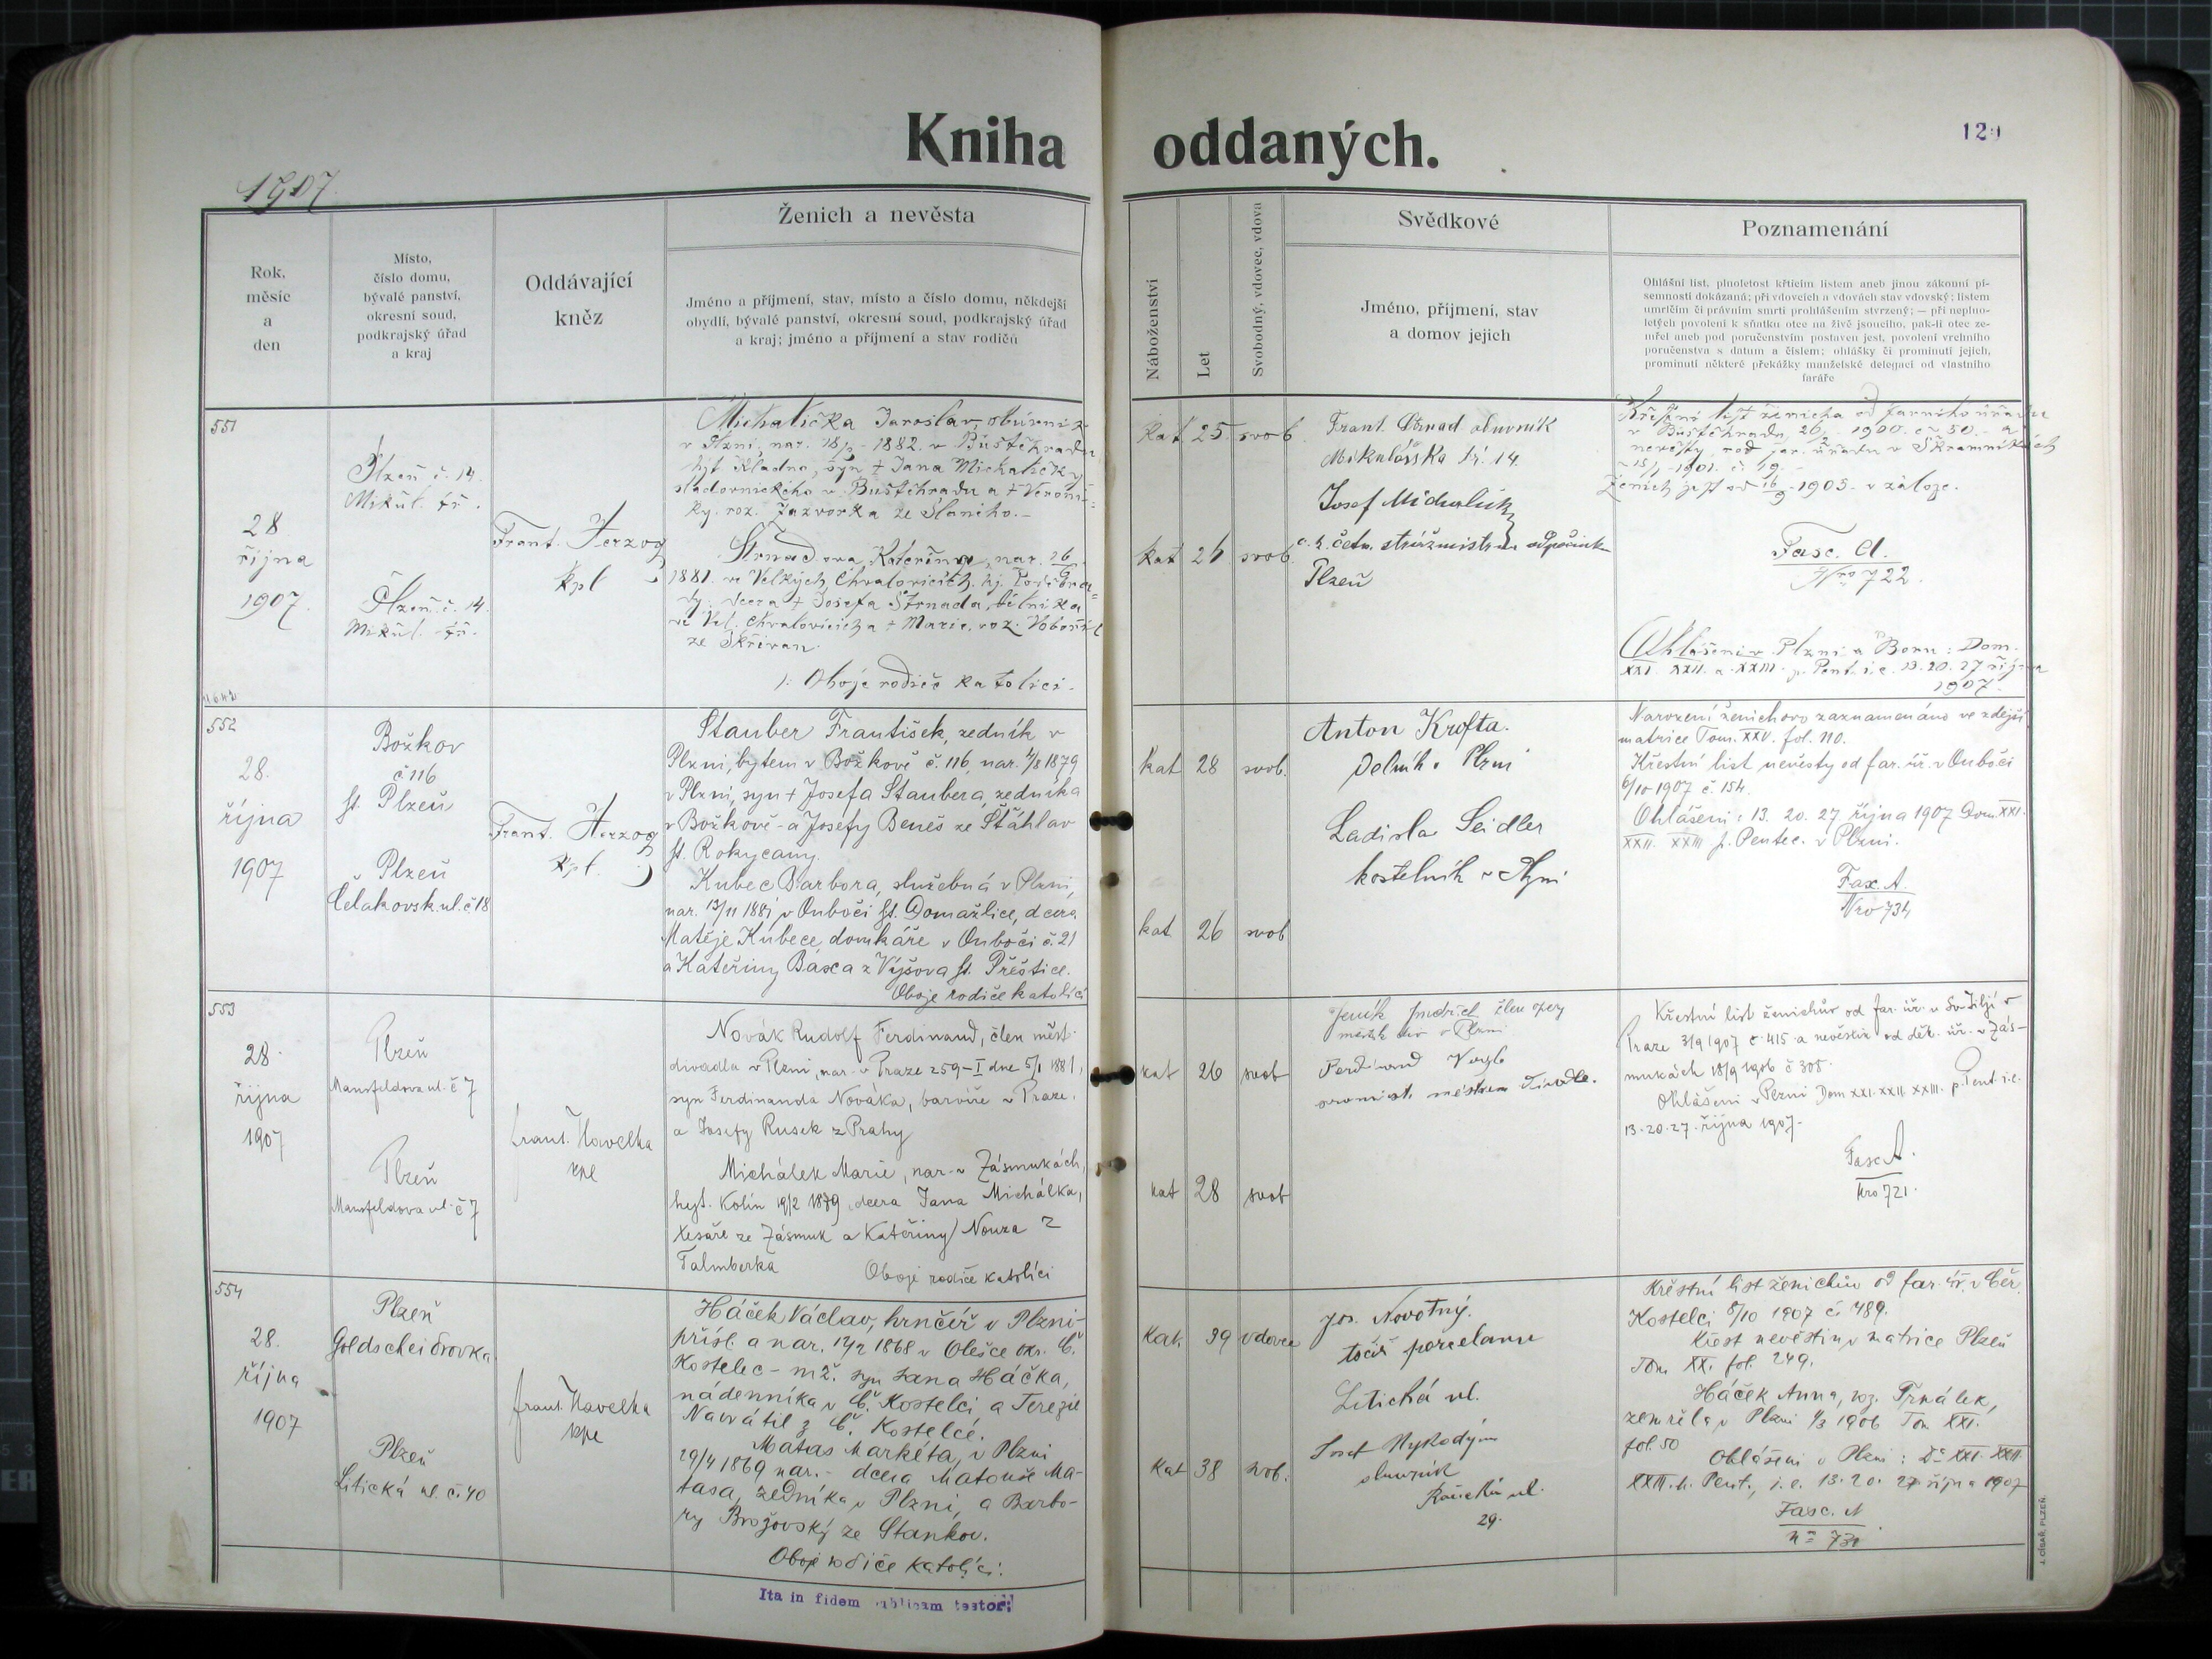 Kniha oddaných.
129
1907
Rok,
měsíc
a
den
Místo,
číslo domu,
bývalé panství,
okresní soud,
podkrajský úřad
a kraj
Oddávající
kněz
Ženich a nevěsta
Jméno a příjmení, stav, místo a číslo domu, někdejší
obydlí, bývalé panství, okresní soud, podkrajský úřad
a kraj; jméno a příjmení a stav rodičů
Náboženství
Let
Svobodný, vdovec, vdova
Svědkové
Jméno, příjmení, stav
a domov jejich
Poznamenání
Ohlášní list, plnoletost křticím listem aneb jinou zákonní pí-
semností dokázaná; při vdovcích a vdovách stav vdovský; listem
umrlčím či právním smrti prohlášením stvrzený; — při neplno-
letých povolení k sňatku otce na živě jsoucího, pak-li otec ze-
mřel aneb pod poručenstvím postaven jest, povolení vrchního
poručenstva s datum a číslem; ohlášky či prominutí jejich,
prominutí některé překážky manželské delegací od vlastního
faráře
551
28
října
1907
Plzeň č. 14.
Mikul. tř.
Plzeň č. 14.
Mikul. tř.
Frant. Herzog
kpl
Michalička Jaroslav, obuvník
v Plzni, nar. 1882 v Buštěhradu
hjt Kladno, syn † Jana Michaličky
sladovnického v Buštěhradu a † Veroni-
ky roz. Jazvorka ze Slaného.
Strnadova Kateřina, nar. 26/6
1881 ve Velkých Chvalovicích, hj. Poděbra-
dy, dcera † Josefa Strnada,
ve Vel. Chvalovicích a † Marie, roz. Vobořil
ze Skřivan.
Oboje rodiče katolíci.
kat 25 svob
kat 26 svob
Frant. Strnad obuvník
Mikulášská tř. 14.
Josef Michalička
c. k. četn. strážmistr
Plzeň
Křestní list ženicha od farního úřadu
v Buštěhradu 1900 č. 50 a
nevěsty od far. úřadu v Skramníkách
1901 č. 19.
Ženich jest od 16/9 1905 v záloze.
Fasc. A.
Nro 722.
Ohlášeni v Plzni a Boru: Dom.
XXI. XXII. a XXIII. p. Pent. i. e. 13. 20. 27 října
1907
552
28.
října
1907
Božkov
č 116
ht. Plzeň
Plzeň
Čelakovsk. ul. č. 18
Frant. Herzog
kpl.
Stauber František, zedník v
Plzni, bytem v Božkově č. 116, nar. 4/8 1879
v Plzni, syn † Josefa Staubera, zedníka
v Božkově - a Josefy Beneš ze Štáhlav
ht. Rokycany.
Kubec Barbora, služebná v Plzni,
nar. 13/11 1881 v Ouboči ht. Domažlice, dcera
Matěje Kubece, domkáře v Ouboči č. 21
a Kateřiny Basca z Výšova ht. Přeštice.
Oboje rodiče katolíci
kat 28 svob.
kat 26 svob
Anton Krofta.
Dělník v Plzni
Ladisla Seidler
kostelník v Plzni
Narození ženichovo zaznamenáno ve zdejší
matrice Tom. XXV. fol. 110.
Křestní list nevěsty od far. úř. v Ouboči
6/10 1907 č. 154.
Ohlášeni: 13. 20. 27. října 1907 Dom. XXI.
XXII. XXIII p. Pentec. v Plzni.
Fax. A.
Nro 734
553
28.
října
1907
Plzeň
Mansfeldova ul. č 7
Plzeň
Mansfeldova ul. č 7
frant. Havelka
kpl
Novák Rudolf Ferdinand, člen měst.
divadla v Plzni, nar. v Praze 259-I dne 5/1 1881,
syn Ferdinanda Nováka, barvíře v Praze.
a Josefy Rusek z Prahy
Michálek Marie, nar. v Zásmukách,
hejt. Kolín 19/2 1879, dcera Jana Michálka,
tesaře ze Zásmuk a Kateřiny Nouza z
Talmberka
Oboji rodiče katolíci
kat 26 svob
kat 28 svob
Jeník Jindřich člen opery
v Plzni
Ferdinand
městsk. divadla.
Křestní list ženichův od far. úř. u Sv. Jiljí v
Praze 3/9 1907 č. 415 a nevěstin od děk. úř. v Zás-
mukách 18/9 1906 č 305.
Ohlášeni v Plzni Dom XXI. XXII. XXIII. p. Pent. i. e.
13. 20. 27. října 1907.
Fasc A.
Nro 721.
554
28.
října
1907
Plzeň
Goldscheidrovka
Plzeň
Litická ul. č. 40
frant. Havelka
kpl
Háček Václav, hrnčíř v Plzni-
přísl. a nar. 1868 v Olešce okr. Č.
Kostelec - mž. syn Jana Háčka,
nádenníka v Č. Kostelci a Terezie
Navrátil z Č. Kostelce.
Matas Markéta, v Plzni
29/4 1869 nar. - dcera Matouše Ma-
tasa, zedníka v Plzni, a Barbo-
ry Brožovský ze Stankov.
Oboje rodiče katolíci.
Kat. 39 vdovec
Kat 38 svob.
Jos. Novotný.
točíř porcelanu
Litická ul.
Josef Nykodým
29.
Křestní list ženichův od far. úř. v Čer.
Kostelci 8/10 1907 č. 489.
Křest nevěstin v matrice Plzeň
Tom. XX. fol. 249.
Háček Anna, roz. Trnálek,
zemřela v Plzni 1906 Tom XXI.
fol. 50
Ohlášeni v Plzni: XXI. XXII.
XXIII. p. Pent., i. e. 13. 20. 27 října 1907
Fasc. A
no 731
Ita in fidem publicam testor:
J. CÍSAŘ, PLZEŇ.